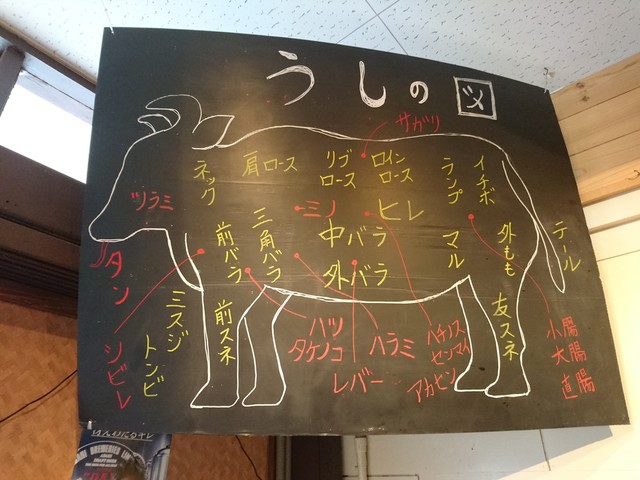 うしの図
サガリ
ネック
肩ロース
リブ
ロース
ロイン
ロース
ランプ
イチボ
ツラミ
ミノ
ヒレ
中バラ
外バラ
前バラ
三角バラ
マル
外もも
テール
タン
シビレ
ミスジ
トンビ
前スネ
ハツ
タケノコ
ハラミ
レバー
ハチノス
センマイ
アカセン
友スネ
小腸
大腸
直腸